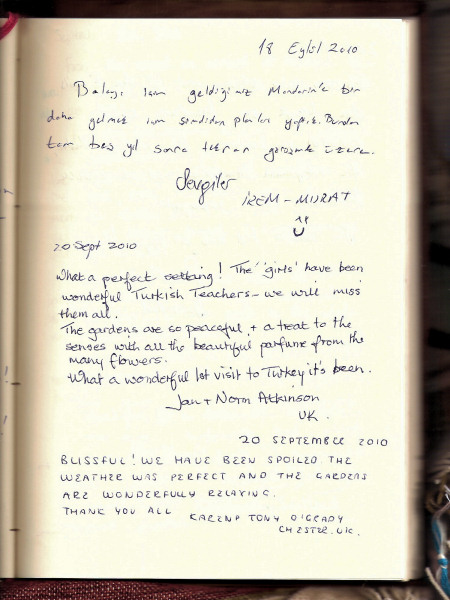 18 Eylül 2010
Balayı için geldiğimiz Mandarin'e bir
daha gelmek için şimdiden planları yaptık. Bundan
tam beş yıl sonra tekrar görüşmek üzere.
Sevgiler
İREM - MURAT
20 Sept 2010
What a perfect setting! The 'girls' have been
wonderful Turkish Teachers - we will miss
them all.
The gardens are so peaceful + a treat to the
senses with all the beautiful parfume from the
many flowers.
What a wonderful 1st visit to Turkey it's been.
Jan + Norm Atkinson
UK.
20 SEPTEMBER 2010
BLISSFUL! WE HAVE BEEN SPOILED THE
WEATHER WAS PERFECT AND THE GARDENS
ARE WONDERFULLY RELAXING.
THANK YOU ALL
KAREN & TONY O'GRADY
CHESTER. UK.